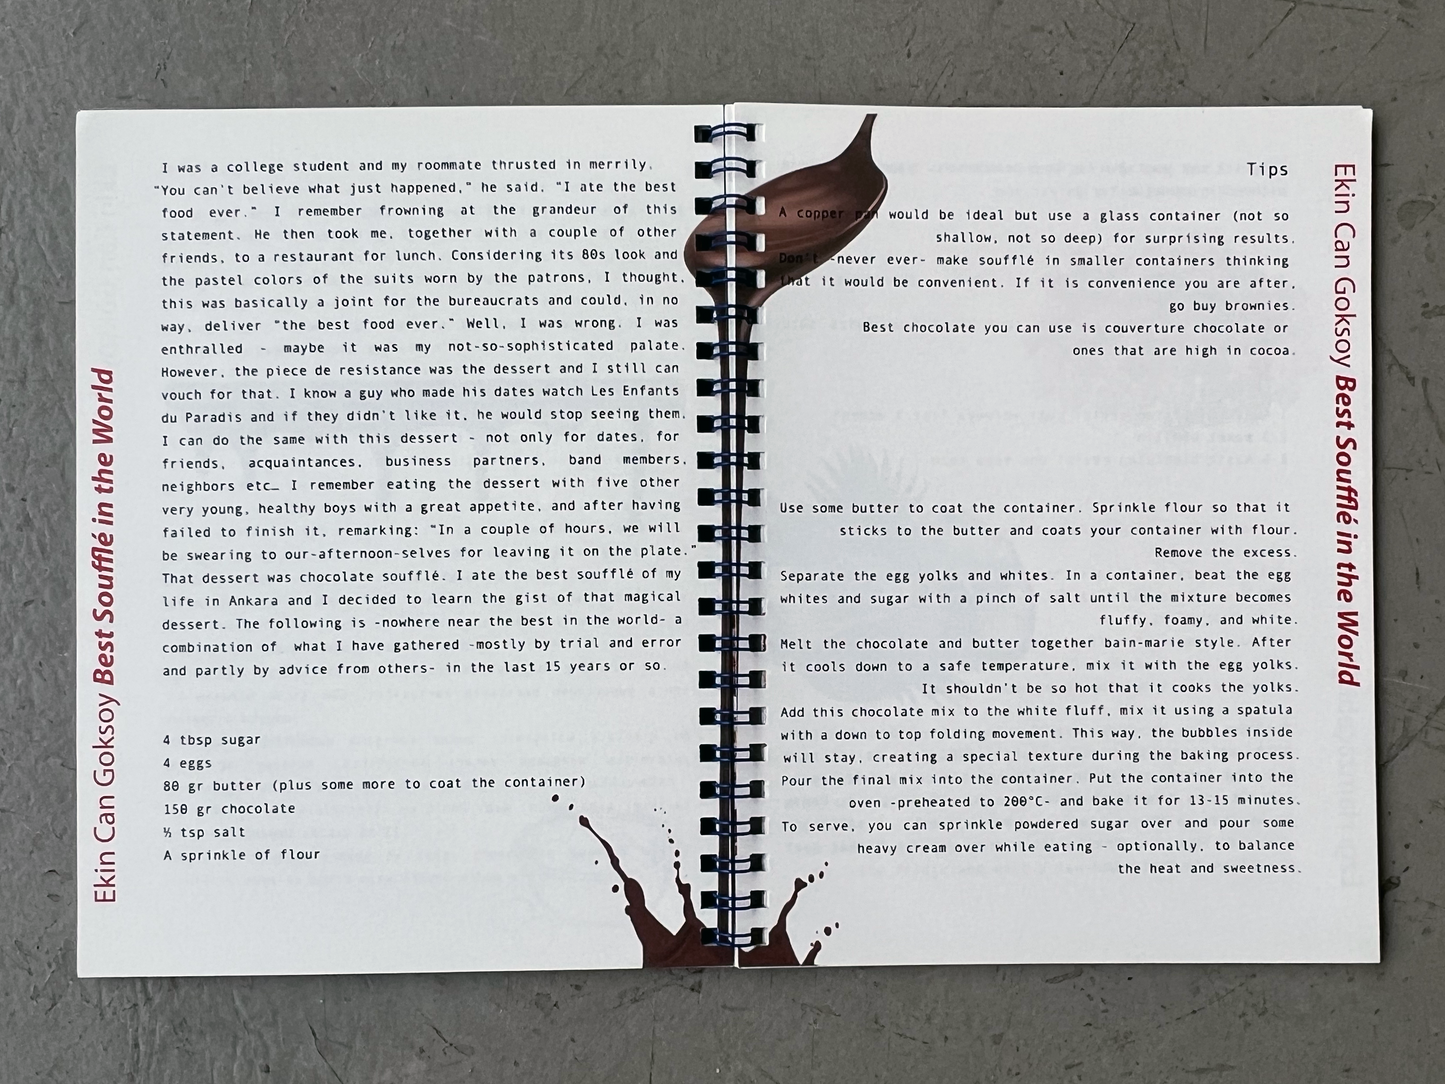 Ekin Can Goksoy Best Soufflé in the World
I was a college student and my roommate thrusted in merrily.
"You can't believe what just happened," he said. "I ate the best
food ever." I remember frowning at the grandeur of this
statement. He then took me, together with a couple of other
friends, to a restaurant for lunch. Considering its 80s look and
the pastel colors of the suits worn by the patrons, I thought,
this was basically a joint for the bureaucrats and could, in no
way, deliver "the best food ever." Well, I was wrong. I was
enthralled - maybe it was my not-so-sophisticated palate.
However, the piece de resistance was the dessert and I still can
vouch for that. I know a guy who made his dates watch Les Enfants
du Paradis and if they didn't like it, he would stop seeing them.
I can do the same with this dessert - not only for dates, for
friends, acquaintances, business partners, band members,
neighbors etc… I remember eating the dessert with five other
very young, healthy boys with a great appetite, and after having
failed to finish it, remarking: "In a couple of hours, we will
be swearing to our-afternoon-selves for leaving it on the plate."
That dessert was chocolate soufflé. I ate the best soufflé of my
life in Ankara and I decided to learn the gist of that magical
dessert. The following is -nowhere near the best in the world- a
combination of what I have gathered -mostly by trial and error
and partly by advice from others- in the last 15 years or so.
4 tbsp sugar
4 eggs
80 gr butter (plus some more to coat the container)
150 gr chocolate
½ tsp salt
A sprinkle of flour
Tips
A copper pan would be ideal but use a glass container (not so
shallow, not so deep) for surprising results.
Don't -never ever- make soufflé in smaller containers thinking
that it would be convenient. If it is convenience you are after,
go buy brownies.
Best chocolate you can use is couverture chocolate or
ones that are high in cocoa.
Use some butter to coat the container. Sprinkle flour so that it
sticks to the butter and coats your container with flour.
Remove the excess.
Separate the egg yolks and whites. In a container, beat the egg
whites and sugar with a pinch of salt until the mixture becomes
fluffy, foamy, and white.
Melt the chocolate and butter together bain-marie style. After
it cools down to a safe temperature, mix it with the egg yolks.
It shouldn't be so hot that it cooks the yolks.
Add this chocolate mix to the white fluff, mix it using a spatula
with a down to top folding movement. This way, the bubbles inside
will stay, creating a special texture during the baking process.
Pour the final mix into the container. Put the container into the
oven -preheated to 200°C- and bake it for 13-15 minutes.
To serve, you can sprinkle powdered sugar over and pour some
heavy cream over while eating - optionally, to balance
the heat and sweetness.
Ekin Can Goksoy Best Soufflé in the World